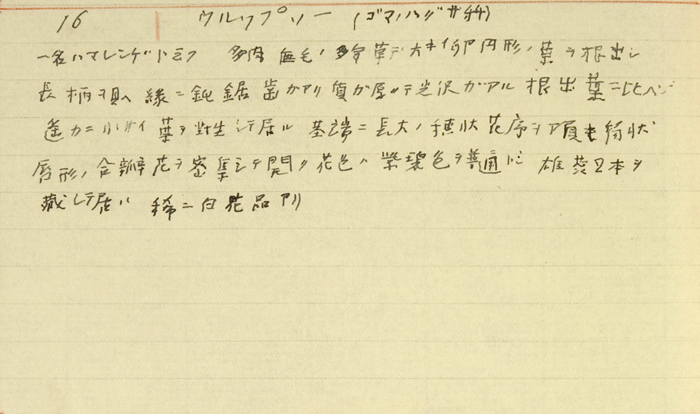 16 ウルップソー (ゴマノハグサ科)
一名ハマレンゲトミフ 多肉 無毛ノ多年草デ大キイ卵円形ノ葉ヲ根出シ
長柄ヲ具ヘ縁ニ鈍鋸歯ガアリ質ガ厚クテ光沢ガアル 根出葉ニ比ベ
遙カニ小サイ葉ヲ対生シテ居ル 茎端ニ長大ノ穂状花序ヲ頂キ筒状
唇形ノ合瓣花ヲ密集シテ開ク花色ハ紫碧色ヲ普通トシ 雄蕊2本ヲ
藏シテ居ル 稀ニ白花品アリ